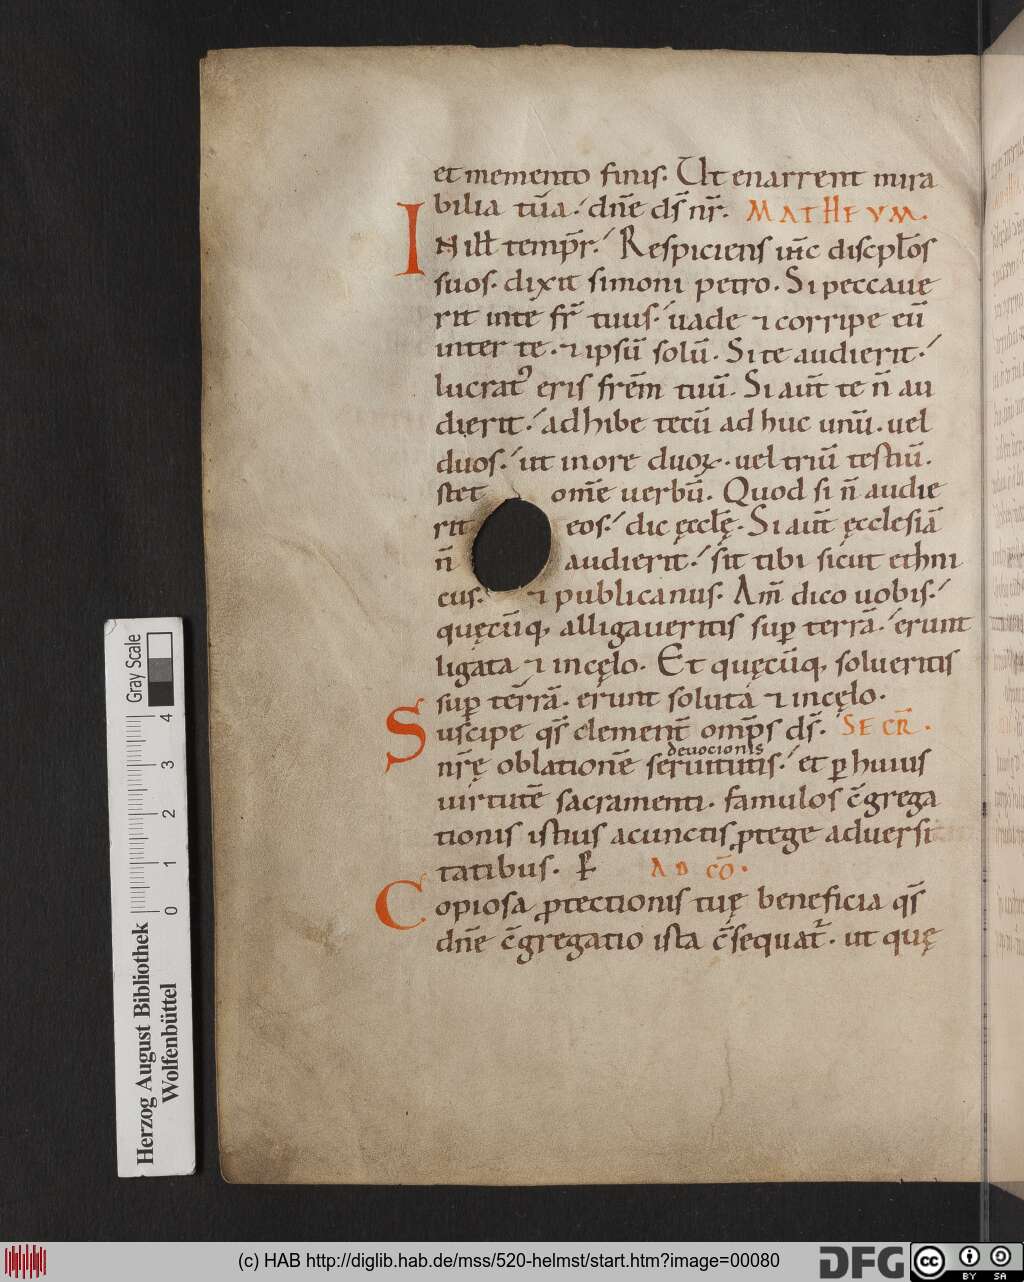 et memento finis. Ut enarrent mira
bilia tūa. dn̄e ds̄ nr̄. MATHEVM.
IN illƚ temp̄r. Respiciens ih̄c discpƚos
suos. dixit simoni petro. Si peccaue
rit inte fr̄ tuus. uade ⁊ corripe eū
inter te. ⁊ ipsū solū. Si te audierit.
lucratꝰ eris frēm tuū. Si aut̄ te n̄ au
dierit. adhibe tecū ad huc unū. uel
duos. ut inore duoꝝ. uel triū testiū.
stet om̄e uerbū. Quod si n̄ audie
rit eos. dic ęccƚę. Si aut̄ ęcclesiā
n̄ audierit. sit tibi sicut ethni
cus. ⁊ publicanus. Am̄ dico uobis.
quęcūq, alligaueritis sup̄ terrā. erunt
ligata ⁊ incęlo. Et quęcūq, solueritis
sup̄ terrā. erunt soluta ⁊ incęlo.
Suscipe qs̄ clement̄ omp̄s ds̄. SECR̄.
devocionis
nr̄ę oblationē seruitutis. et ꝑ huius
uirtutē sacramenti. famulos c̄grega
tionis istius acunctis ꝓtege aduersi
tatibus. P̄ AD CŌ.
Copiosa ꝓtectionis tuę beneficia qs̄
dn̄e c̄gregatio ista c̄sequat̄. ut quę
Herzog August Bibliothek
Wolfenbüttel
Gray Scale
0 1 2 3 4
(c) HAB http://diglib.hab.de/mss/520-helmst/start.htm?image=00080
DFG
cc BY SA